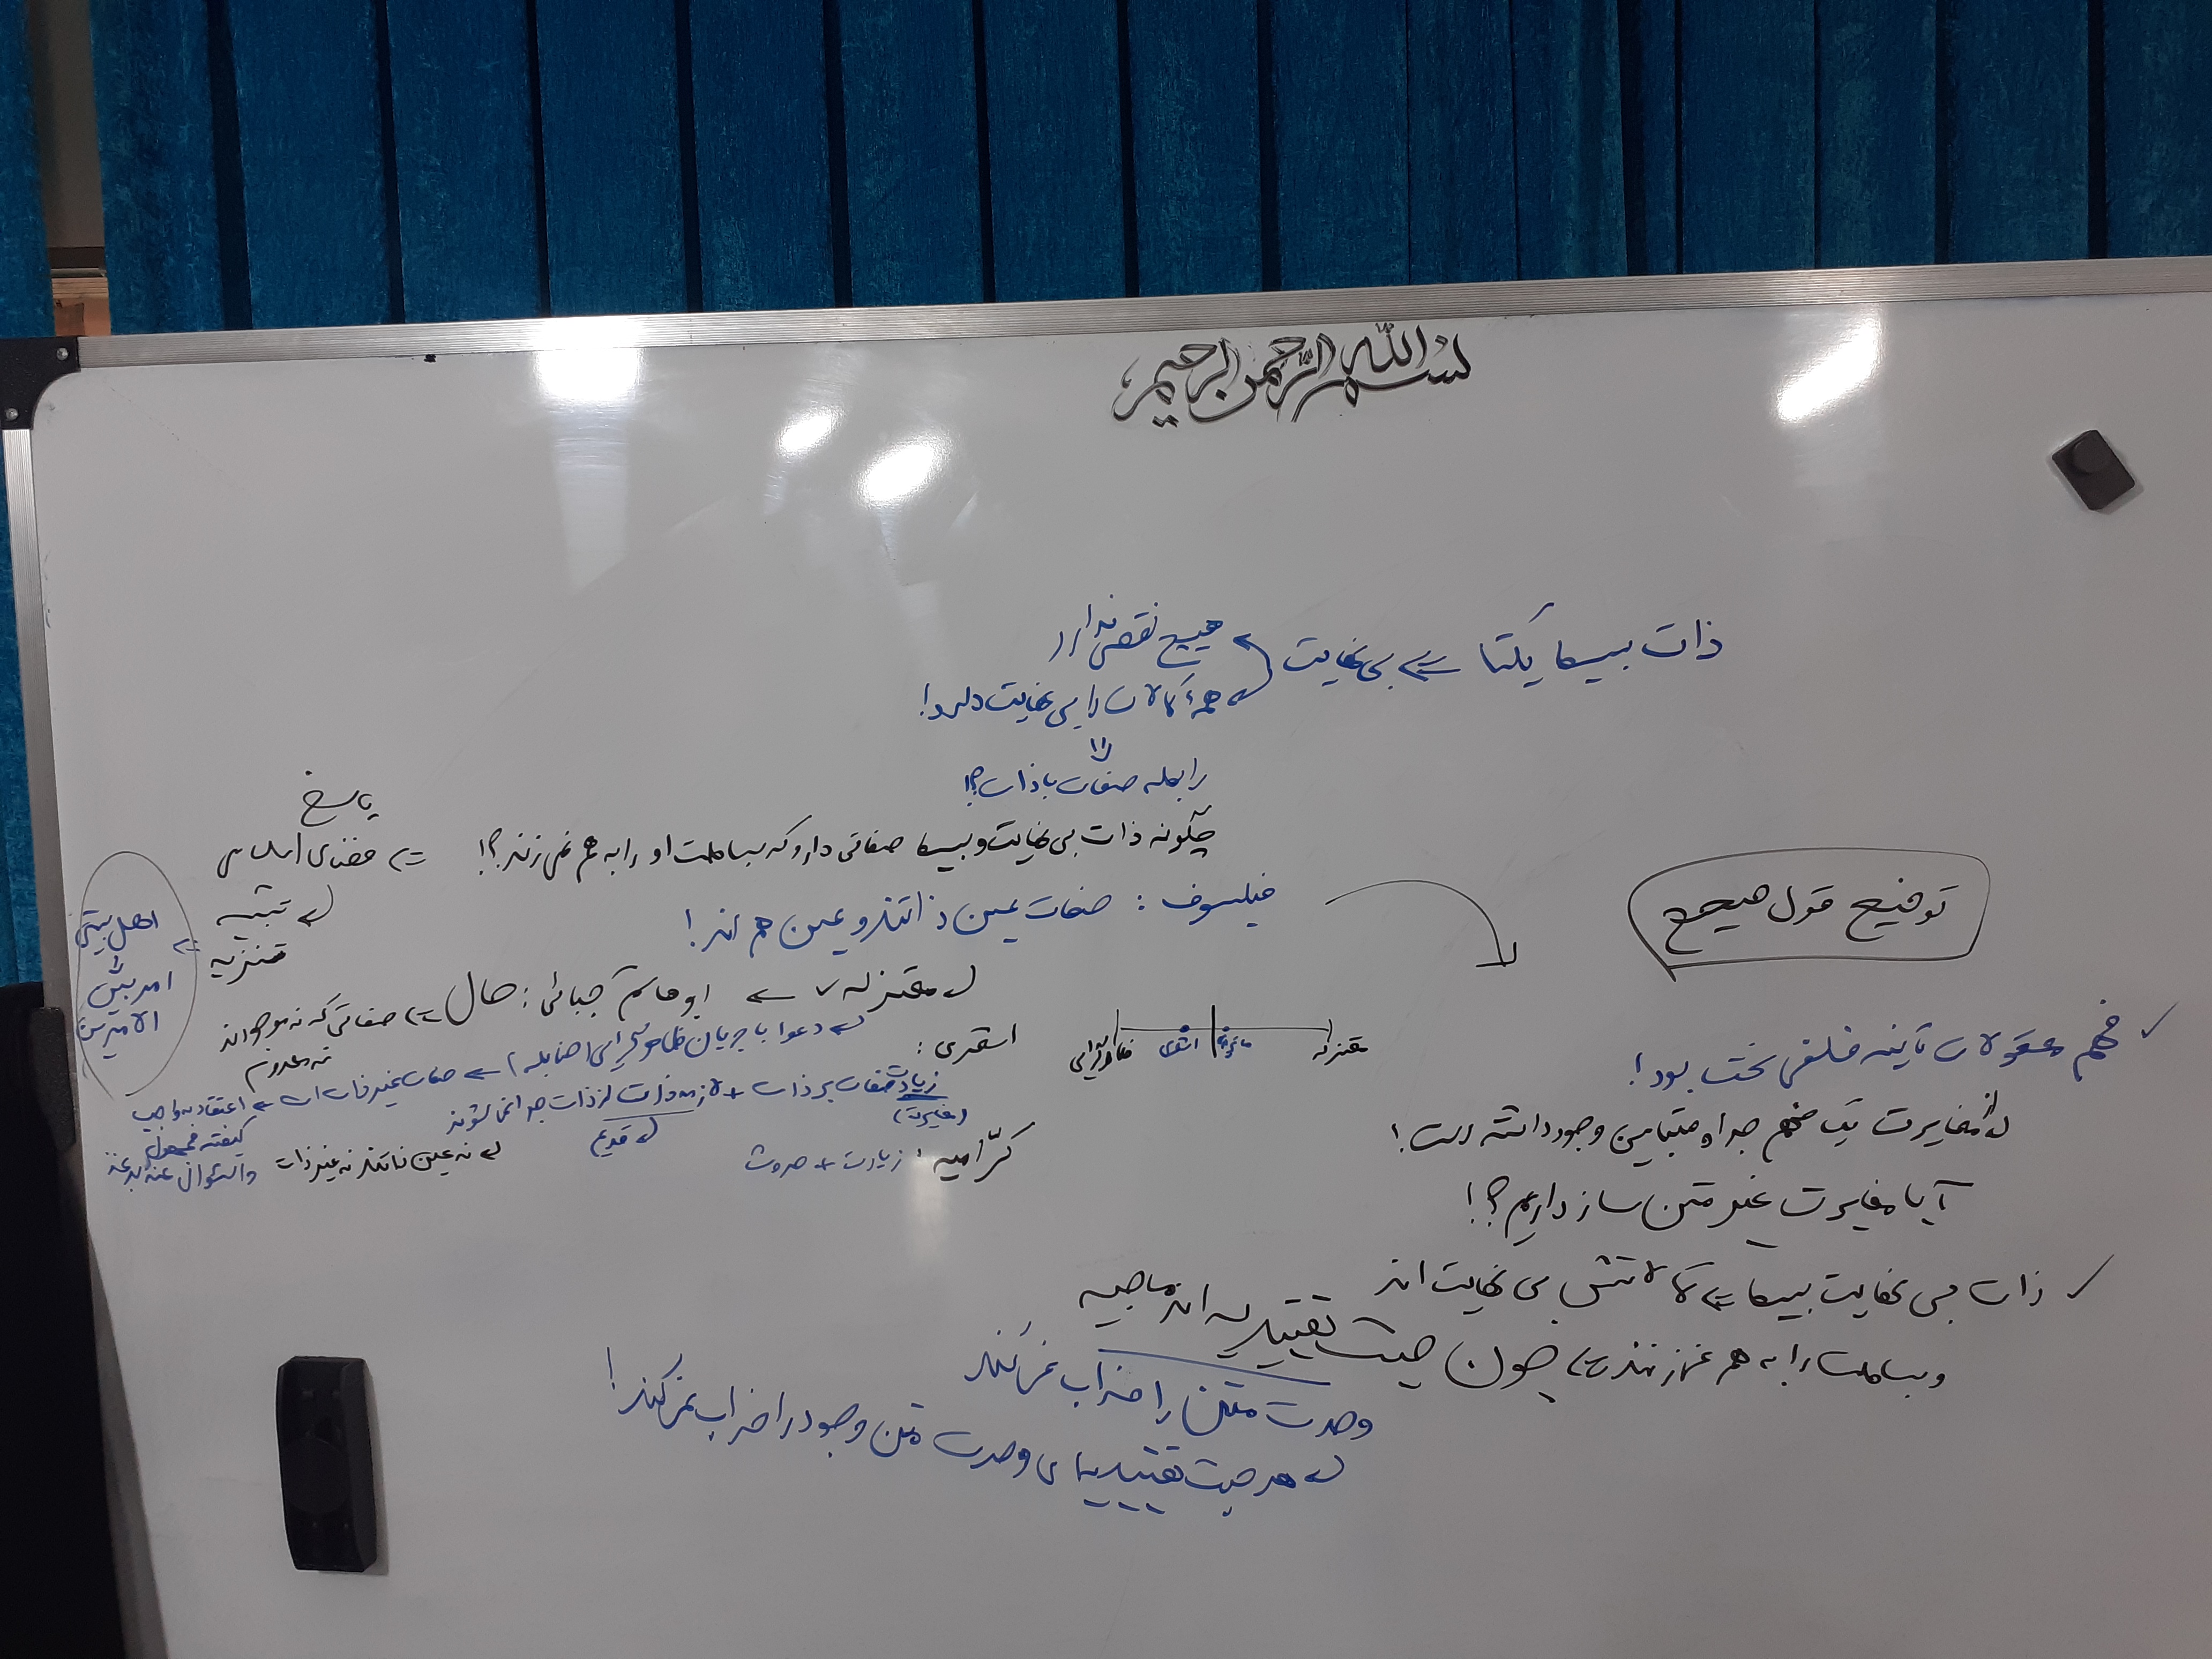 بسم الله الرحمن الرحیم
ذات بسیط یکتا ⇐ بی نهایت
هیچ نقصی ندارد
همۀ کمالات را بی نهایت دارد!
رابطه صفات با ذات؟!
چگونه ذات بی نهایت و بسیط صفاتی دارد که بساطت او را به هم نمی زند؟! ⇐ فضای اساسی
پاسخ
تشبیه
تنزیه
اهل بیتی
امر بین
الامرین
فیلسوف: صفات عین ذاتند و عین هم اند!
معتزله ✓ ← ابوهاشم جبائی: حال ⇐ صفاتی که نه موجوداند
نه معدوم
معتزله ماتریدی اشعری ظاهرگرایی
اشعری:
دعوا با جریان ظاهرگرایی (حنابله) ← صفات غیر ذات است ← اعتقاد به واجب
کیفیته مجهول
والسؤال عنه بدعة
زیادت صفات بر ذات + لازمه ذات از ذات جدا نمی شوند
(مغایرت)
قدیم
نه عین ذاتند نه غیر ذات
کرّامیه: زیادت + حدوث
توضیح قول صحیح
✓ فهم معقولات ثانیه فلسفی سخت بود!
از مغایرت یک فهم جدا و متباین وجود داشته است!
آیا مغایرت غیر متن ساز داریم؟!
✓ ذات بی نهایت بسیط ⇐ کمالاتش بی نهایت اند
و بساطت را به هم نمی زنند چون حیث تقییدیه اند ماهیه
وحدت متن را خراب نمی کنند
هر حیث تقییدیه ای وحدت متن وجود را خراب نمی کند!